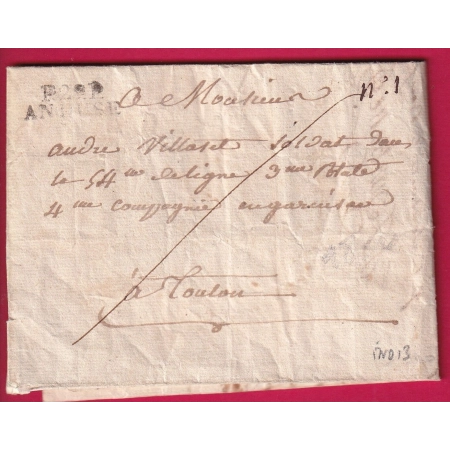 P28P
ANDUSE
a Monsieur
andre Villaret Soldat dans
le 54me deligne 3me Batt
4me compagnie engarnison
à Toulon
n°: 1
IND 13